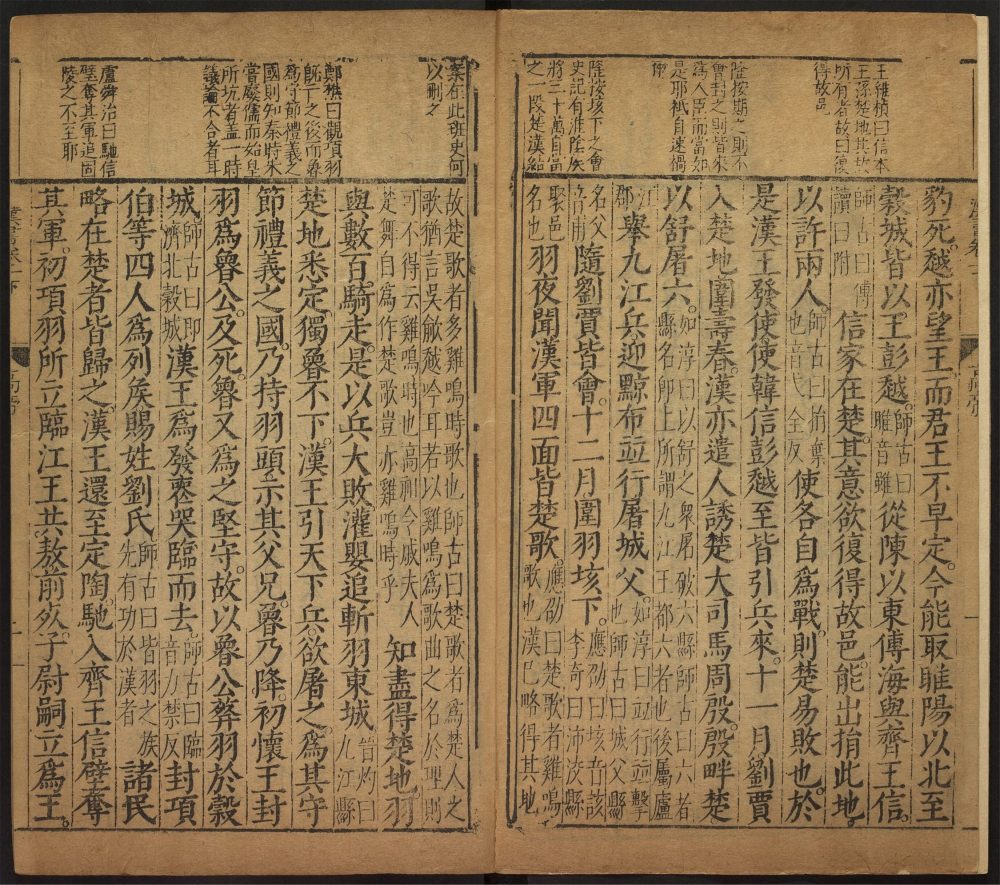 王維楨曰信本
王孫楚地其故
所有者故曰復
得故邑
陸按期之則不
會封之則皆來
為人臣而當如
是耶祇自速禍
爾
陸按垓下之會
史記有淮陰矦
將三十萬自當
之一段楚漢結
豹死越亦望王而君王不早定今能取睢陽以北至
穀城皆以王彭越師古曰睢音雖從陳以東傳海與齊王信
師古曰傳讀曰附信家在楚其意欲復得故邑能出捐此地
以許兩人師古曰捐棄也音弋全反使各自為戰則楚易敗也於
是漢王發使使韓信彭越至皆引兵來十一月劉賈
入楚地圍壽春漢亦遣人誘楚大司馬周殷殷畔楚
以舒屠六如淳曰以舒之衆屠破六縣師古曰六者縣名即上所謂九江王都六者也後屬廬
江郡舉九江兵迎黥布竝行屠城父如淳曰竝行竝擊也師古曰城父縣
名父音甫隨劉賈皆會十二月圍羽垓下應劭曰垓音該李奇曰沛洨縣
聚邑名也羽夜聞漢軍四面皆楚歌應劭曰楚歌者雞鳴歌也漢已略得其地
案在此班史何
以刪之
鄭樵曰觀項羽
既亡之後而魯
為守節禮義之
國則知秦時未
嘗廢儒而始皇
所坑者盖一時
議論不合者耳
盧舜治曰馳信
壁奪其軍追固
陵之不至耶
故楚歌者多雞鳴時歌也師古曰楚歌者為楚人之
歌猶言吳歈越吟耳若以雞鳴為歌曲之名於理則
可不得云雞鳴時也高祖令戚夫人楚舞自為作楚歌豈亦雞鳴時乎知盡得楚地羽
與數百騎走是以兵大敗灌嬰追斬羽東城晉灼曰九江縣
楚地悉定獨魯不下漢王引天下兵欲屠之為其守
節禮義之國乃持羽頭示其父兄魯乃降初懷王封
羽為魯公及死魯又為之堅守故以魯公葬羽於穀
城師古曰即濟北穀城漢王為發喪哭臨而去師古曰臨音力禁反封項
伯等四人為列矦賜姓劉氏師古曰皆羽之族先有功於漢者諸民
略在楚者皆歸之漢王還至定陶馳入齊王信壁奪
其軍初項羽所立臨江王共敖前死子尉嗣立為王